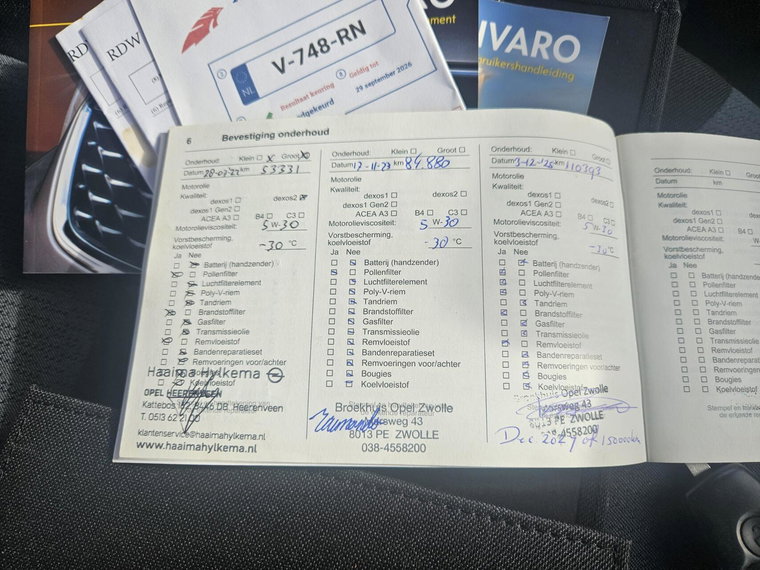 RDW
RDW
V-748-RN
NL
Geldig tot
29 september 2026
Resultaat keuring
IVARO
bruikershandleiding
6 Bevestiging onderhoud
Onderhoud: Klein Groot
Datum 28-03-22 km 53331
Motorolie
Kwaliteit:
dexos1 dexos2
dexos1 Gen2
ACEA A3 B4 C3
Motorolieviscositeit: 5 W-30
Vorstbescherming,
koelvloeistof -30 °C
Ja Nee
Batterij (handzender)
Pollenfilter
Luchtfilterelement
Poly-V-riem
Tandriem
Brandstoffilter
Gasfilter
Transmissieolie
Remvloeistof
Bandenreparatieset
Remvoeringen voor/achter
Koelvloeistof
Haaima Hylkema
OPEL HEERENVEEN
8446 DB Heerenveen
klantenservice@haaimahylkema.nl
www.haaimahylkema.nl
Onderhoud: Klein Groot
Datum 17-11-23 km 84.880
Motorolie
Kwaliteit:
dexos1 dexos2
dexos1 Gen2
ACEA A3 B4 C3
Motorolieviscositeit: 5 W-30
Vorstbescherming,
koelvloeistof -30 °C
Ja Nee
Batterij (handzender)
Pollenfilter
Luchtfilterelement
Poly-V-riem
Tandriem
Brandstoffilter
Gasfilter
Transmissieolie
Remvloeistof
Bandenreparatieset
Remvoeringen voor/achter
Bougies
Koelvloeistof
Broekhuis Opel Zwolle
8013 PE ZWOLLE
038-4558200
Onderhoud: Klein Groot
Datum 3-12-'25 km 110393
Motorolie
Kwaliteit:
dexos1 dexos2
dexos1 Gen2
ACEA A3 B4 C3
Motorolieviscositeit: 5 W-30
Vorstbescherming,
koelvloeistof -30 °C
Ja Nee
Batterij (handzender)
Pollenfilter
Luchtfilterelement
Poly-V-riem
Tandriem
Brandstoffilter
Gasfilter
Transmissieolie
Remvloeistof
Bandenreparatieset
Remvoeringen voor/achter
Bougies
Koelvloeistof
Broekhuis Opel Zwolle
8013 PE ZWOLLE
4558200
Dec 2027 of 150000km
Onderhoud:
Datum km
Motorolie
Kwaliteit:
dexos1
dexos1 Gen2
ACEA A3
Motorolieviscositeit:
Vorstbescherming,
koelvloeistof
Ja Nee
Batterij (handzender)
Pollenfilter
Luchtfilterelement
Poly-V-riem
Tandriem
Brandstoffilter
Gasfilter
Transmissieolie
Remvloeistof
Bandenreparatieset
Remvoeringen
Bougies
Koelvloeistof